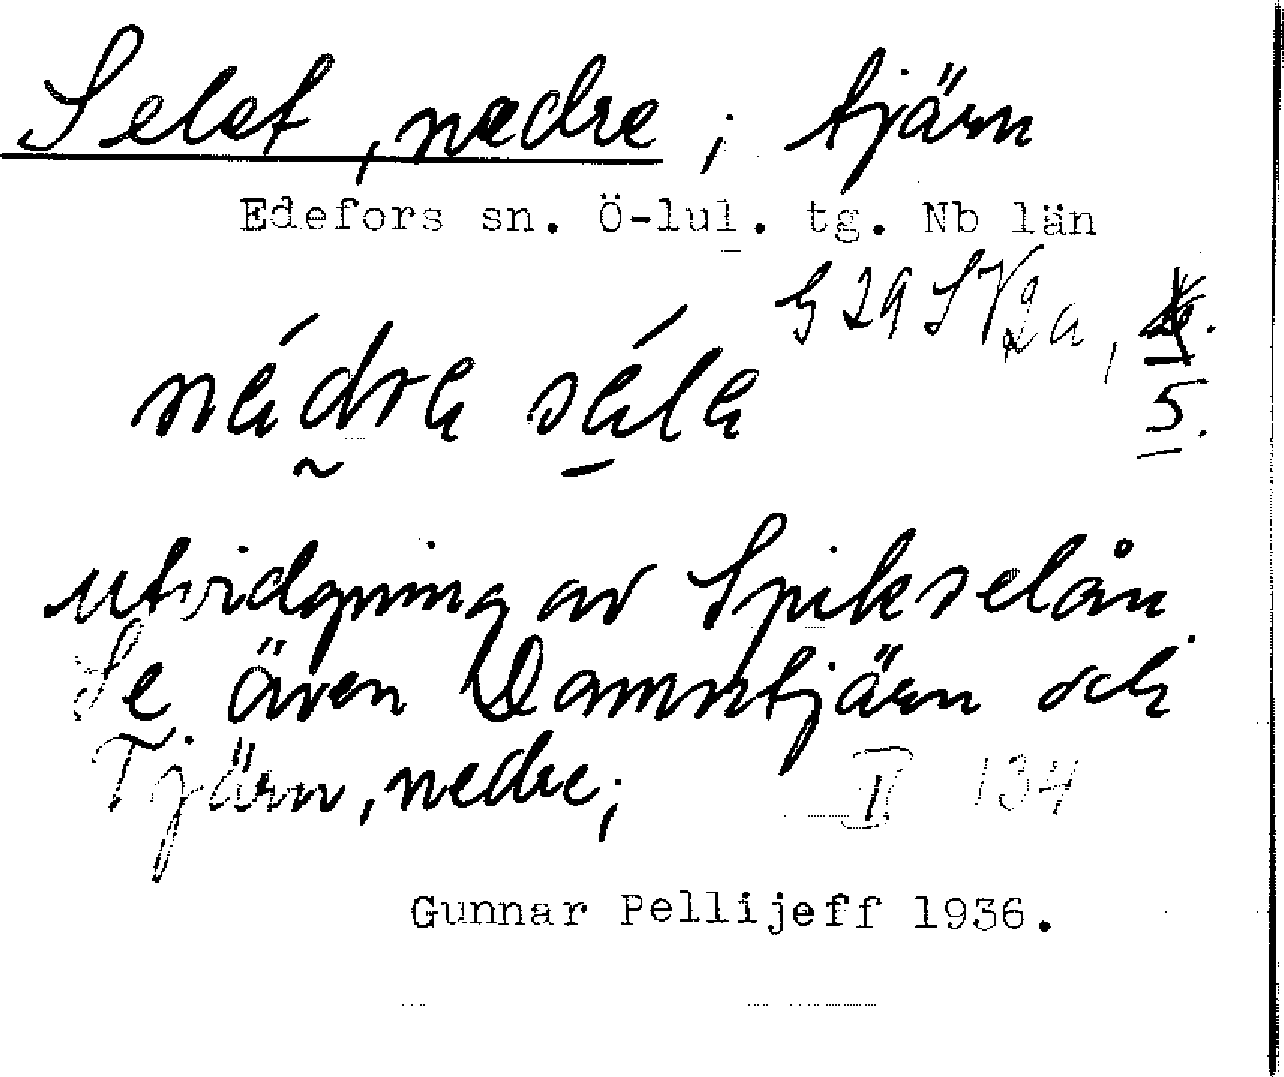 Selet, nedre; tjärn
Edefors sn. Ö-lul. tg. Nb län
G 29 SV 2a,
5.
nédra séla
utvidgning av Spikselån.
Se även Dammtjärn och
Tjärn, nedre; II 134
Gunnar Pellijeff 1936.